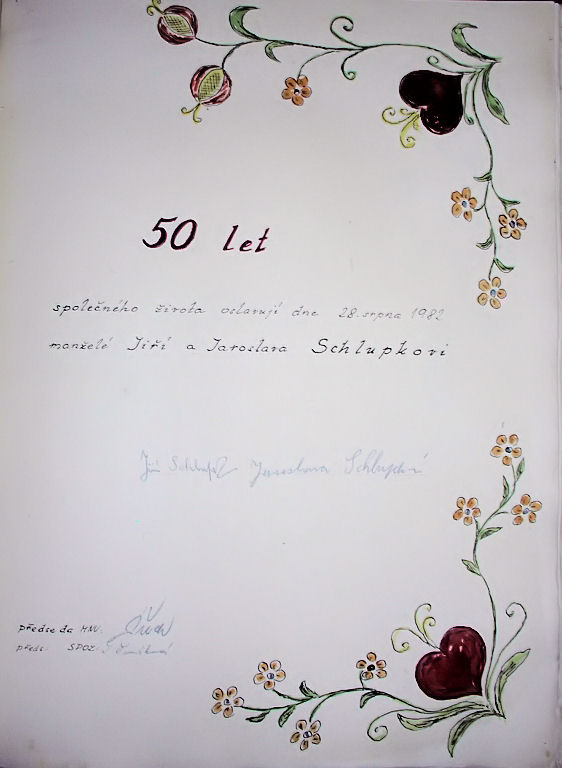 50 let
společného života oslavují dne 28. srpna 1982
manželé Jiří a Jaroslava Schlupkovi
Jiří Schlupek Jaroslava Schlupková
předseda MNV:
předs. SPOZ: